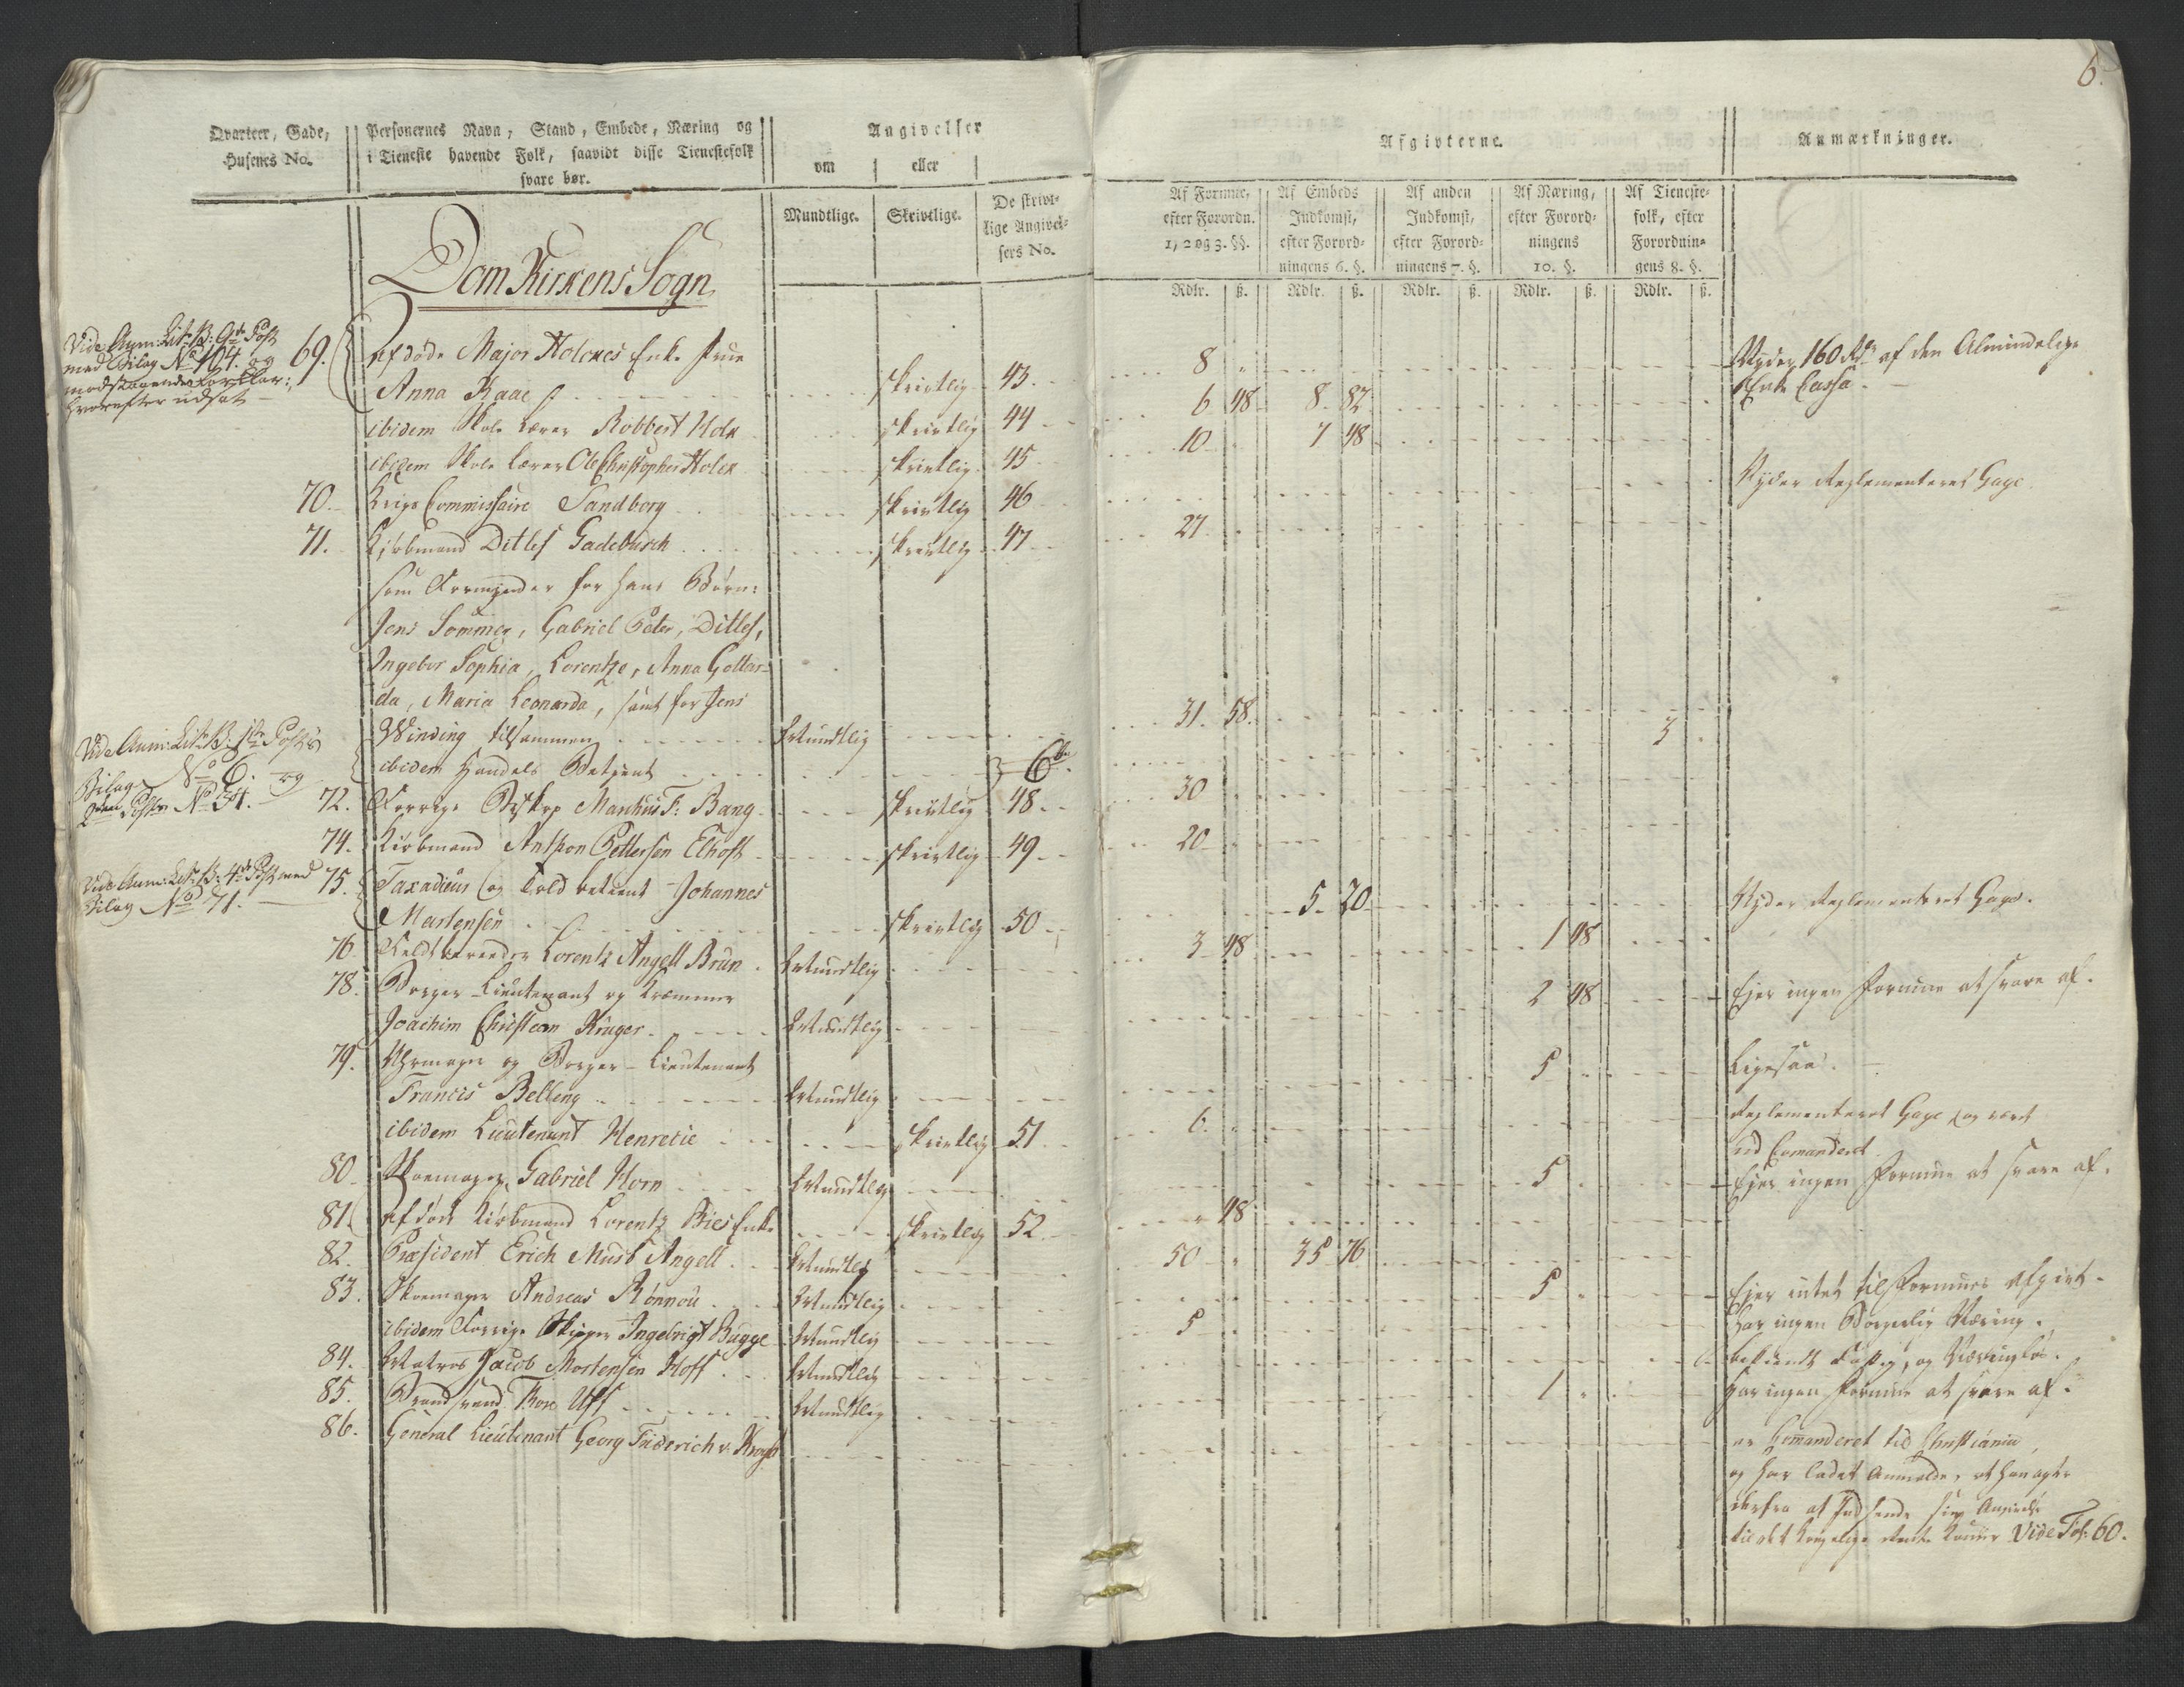 6.
Qvarteer, Gade,
Husenes No.
Personernes Navn, Stand, Embede, Næring og
i Tieneste havende Folk, saavidt disse Tienestefolk
svare bør.
Angivelser
om eller
Mundtlige. Skrivtlige. De skrivt-
lige Angivel-
sers No.
Afgivterne.
Af Formue,
efter Forordn.
1, 2 og 3. §§.
Af Embeds
Indkomst,
efter Forord-
ningens 6. §.
Af anden
Indkomst,
efter Forord-
ningens 7. §.
Af Næring,
efter Forord-
ningens
10. §.
Af Tieneste-
folk, efter
Forordnin-
gens 8. §.
Rdlr. ß. Rdlr. ß. Rdlr. ß. Rdlr. ß. Rdlr. ß.
Anmærkninger.
Dom Kirkens Sogn
Vide Anm: Litr. B: 9de Post
med Bilag No 104. og
modstaaende Forklar:,
hvorefter udsat
69. afdøde Major Holckes Enke Frue
Anna Kaae skrivtlig 43. 8 Nyder 160 Rdr af den Almindelige
Enke Cassa.
ibidem Skole Lærer Robbert Holck skrivtlig 44 6 48 8 82
ibidem Skole Lærer Ole Christopher Holck skrivtlig 45 10 7 48
70. Krigs Commissaire Sandborg skrivtlig 46 Nyder Reglementeret Gage
71. Kiøbmand Ditlef Gadebusch skrivtlig 47 27
som Formynder for hans Børn:
Jens Sommer, Gabriel Peter, Ditlef,
Ingebor Sophia, Lorentze, Anna Gottar-
da, Maria Leonarda, samt for Jens
Winding tilsammen Mundtlig 31. 58.
Vide Anm: Litr. B: 1ste Posts
Bilag No 6. og
2den Post No 34.
ibidem Handels Betient 6te. 3
72. Forrige Biskop Marchus F: Bang skrivtlig 48. 30
74. Kiøbmand Anthon Pettersen Elhoft skrivtlig 49 20
Vide Anm: Litr. B: 4de Post med
Bilag No 71.
75. Taxadieur og Told betient Johannes
Martensen skrivtlig 50 5 20 Nyder Reglementeret Gage.
76. Feldbereeder Lorentz Angell Brun Mundtlig 3 48 1 48
78. Borger-Lieutenant og Kræmmer
Joachim Christian Krüger Mundtlig 2 48 Ejer ingen Formue at svare af.
79. Uhrmager og Borger-Lieutenant
Francis Belling Mundtlig 5 Ligesaa.
ibidem Lieutenant Henrecie skrivtlig 51 6 Reglementeret Gage og været
ud Comanderet.
80 Skoemager Gabriel Horn Mundtlig 5 Ejer ingen Formue at svare af.
81 afdøde Kiøbmand Lorentz Bies Enke skrivtlig 52 48
82. Præsident Erich Must Angell Mundtlig 50 35 76
83. Skoemager Andreas Rønnou Mundtlig 5 Ejer intet til Formues Afgivt.
ibidem Forrige Skipper Ingebrigt Bugge Mundtlig 5 Har ingen Borgerlig Næring.
84. Matros Jacob Mortensen Hoff Mundtlig befindes Fattig, og Næringsløs.
85. Brandsvend Thore Uff Mundtlig 1 Har ingen Formue at svare af.
86. General Lieutenant Georg Friderich v. Krogh er Comanderet til Christiania,
og har ladet anmelde, at han agter
derfra at Indsende sin Angivelse
til det Kongelige Rente Kamer Vide Fol: 60.